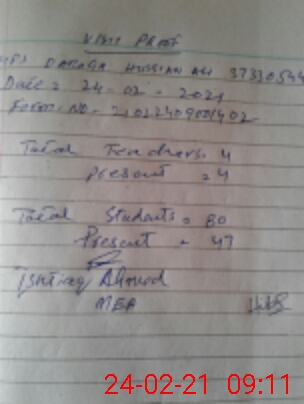 VISIT PROOF
GPS DARAGA HUSSIAN ALI 37330544
Date: 24-02-2021
Form. NO-
Total Teachers. 4
Present = 4
Total Students = 80
Present = 47
Ishtiaq Ahmed
MEA
24-02-21 09:11